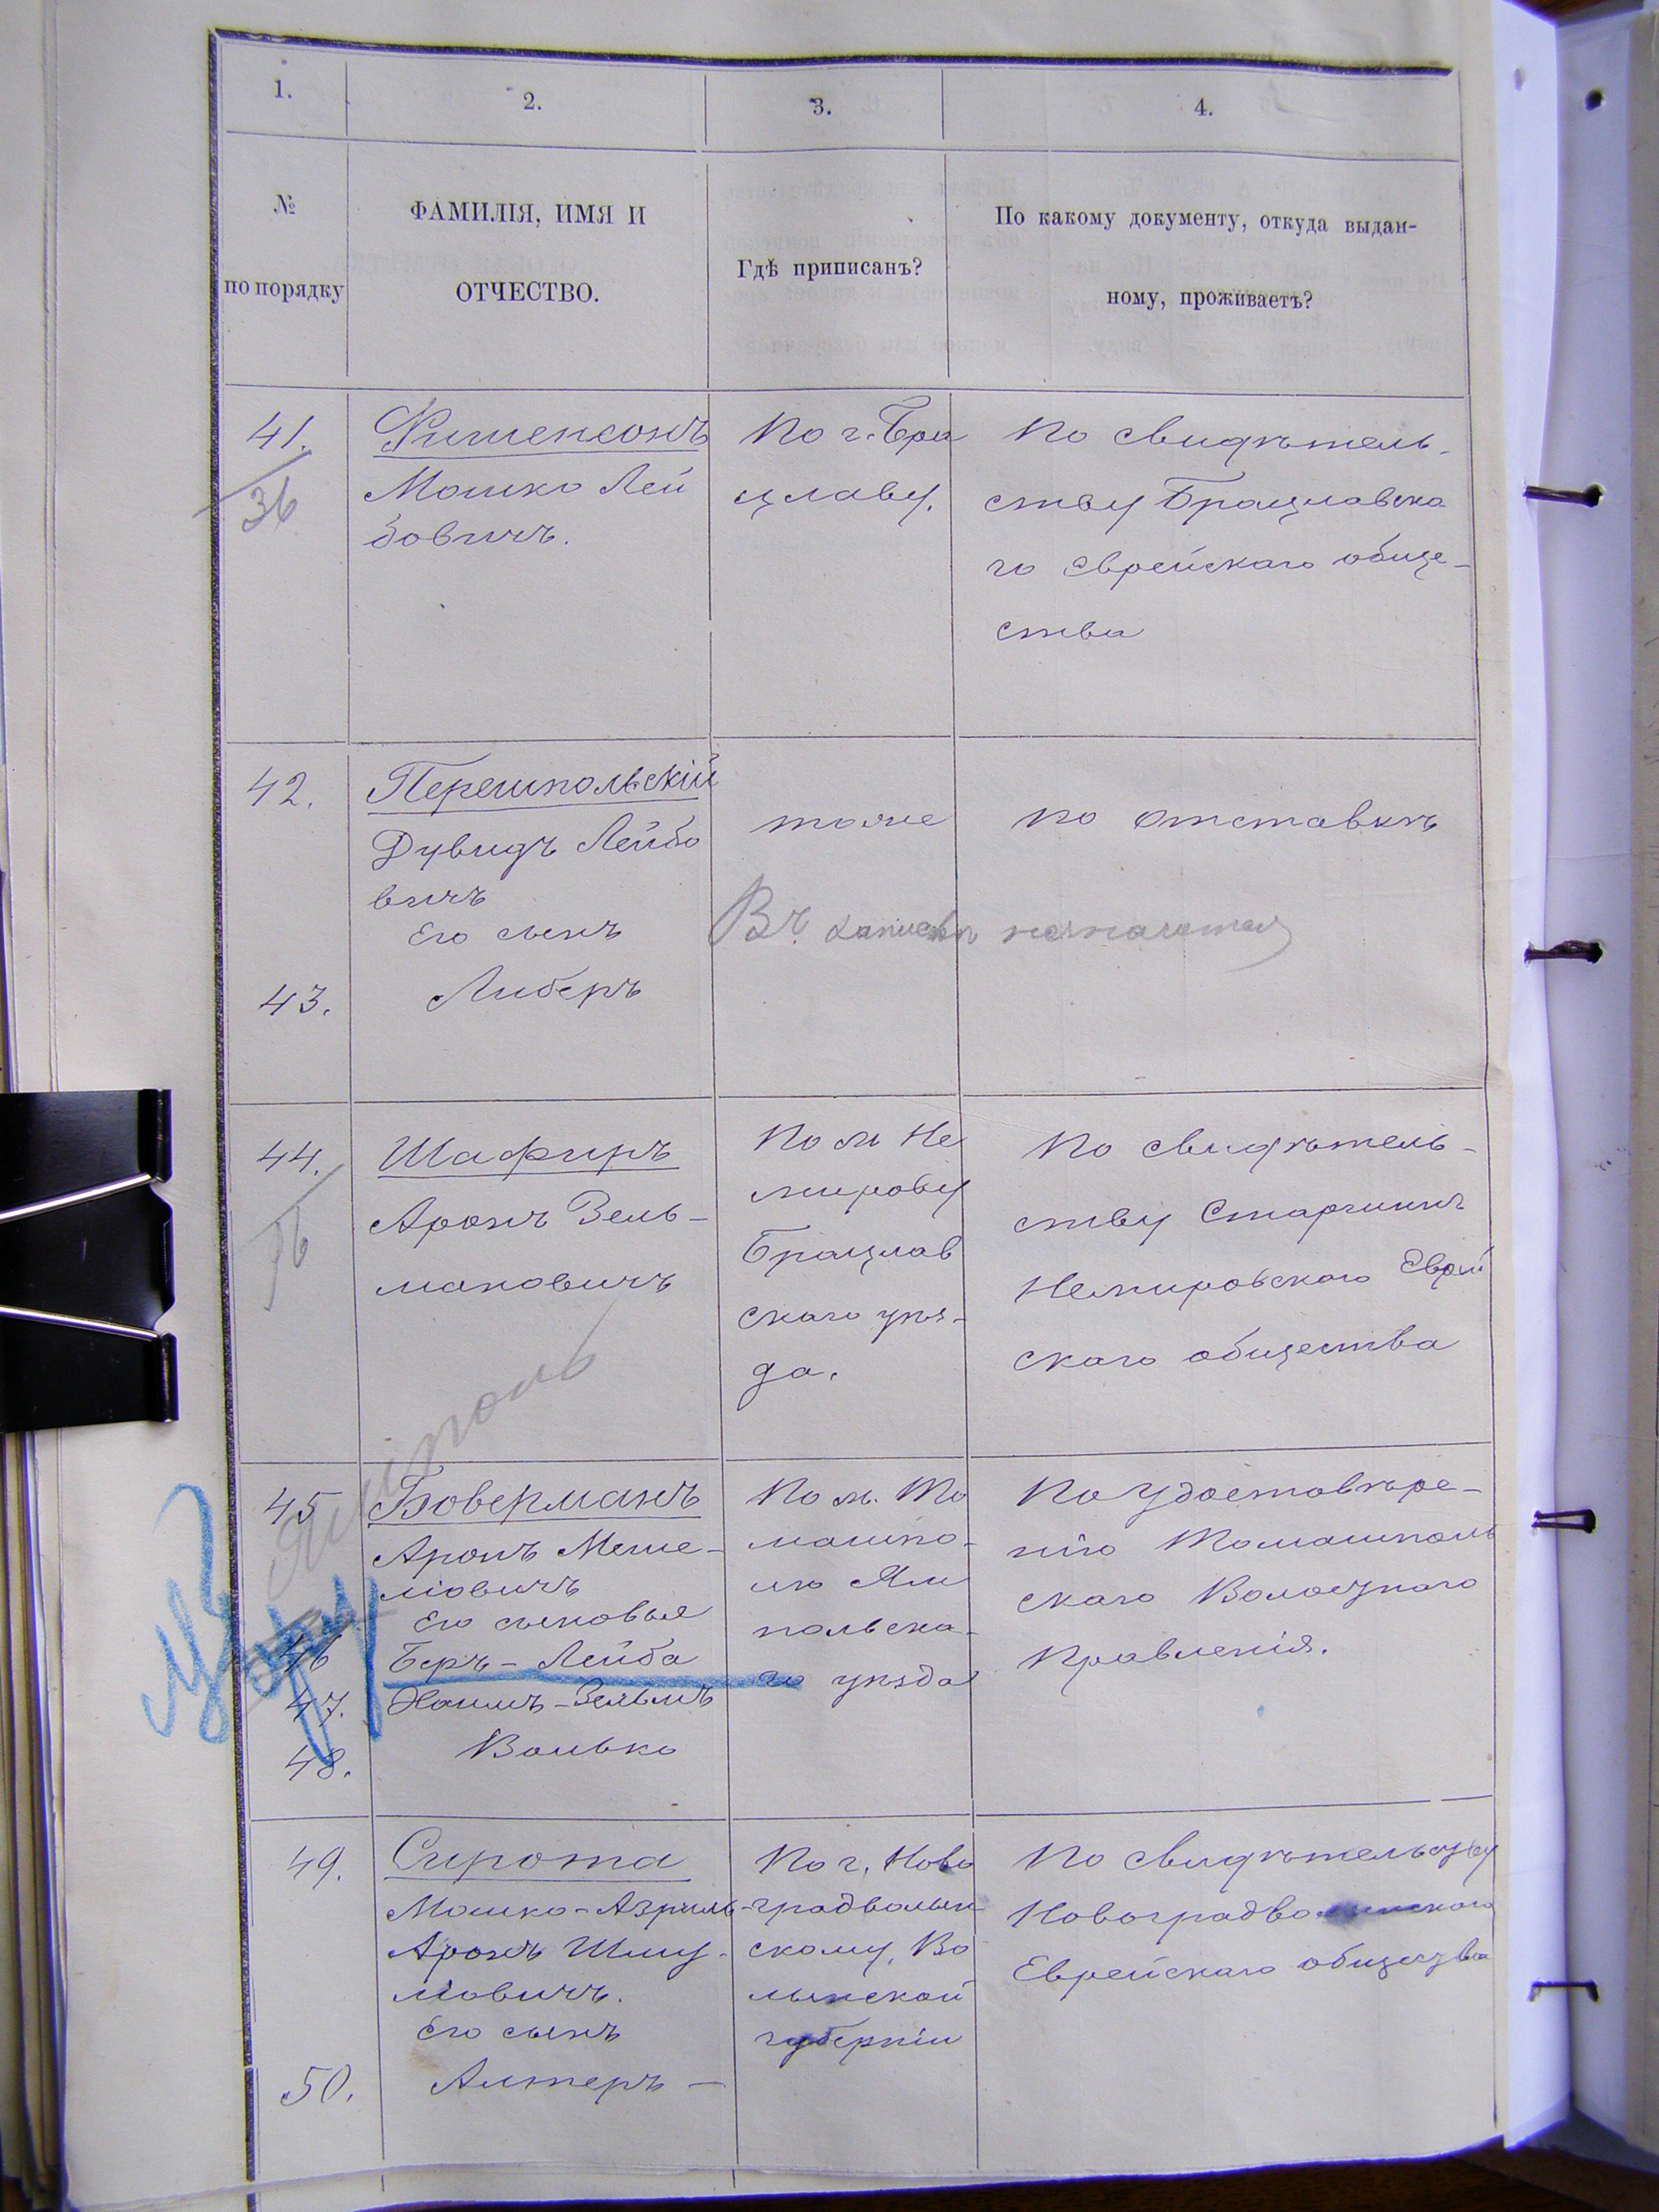 1.
2.
3.
4.
№
по порядку
ФАМИЛІЯ, ИМЯ И
ОТЧЕСТВО.
Гдѣ приписанъ?
По какому документу, откуда выдан-
ному, проживаетъ?
41.
36
Фишенсонъ
Мошко Лей
бовичъ.
По г. Бра
цлаву.
По свидѣтель-
ству Брацлавска
го еврейскаго обще-
ства
42.
Перешпольскій
Дувидъ Лейбо
вичъ
Его сынъ
43.
Либеръ
тоже
По отставкѣ
Въ
44.
Шафиръ
Аронъ Зель-
мановичъ
По м Не
мирову
Брацлав
скаго уѣз-
да.
По свидѣтель-
ству Старшинъ
Немировскаго Еврей
скаго общества
Ямполь
45
Боверманъ
Аронъ Меше-
лiовичъ
Его сыновья
46
Беръ-Лейба
47.
Хаимъ-Зельмъ
48.
Волько
По м. То
машпо-
лю Ям
польска-
го уѣзда
По удостовѣре-
нію Томашполь
скаго Волостнаго
Правленія.
49.
Сирота
Мошко-Азриль-
Аронъ Шму-
лiовичъ.
Его сынъ
50.
Альтеръ —
По г. Ново
градволын
скому, Во
лынской
губерніи
По свидѣтельству
Новоградволынскаго
Еврейскаго общества